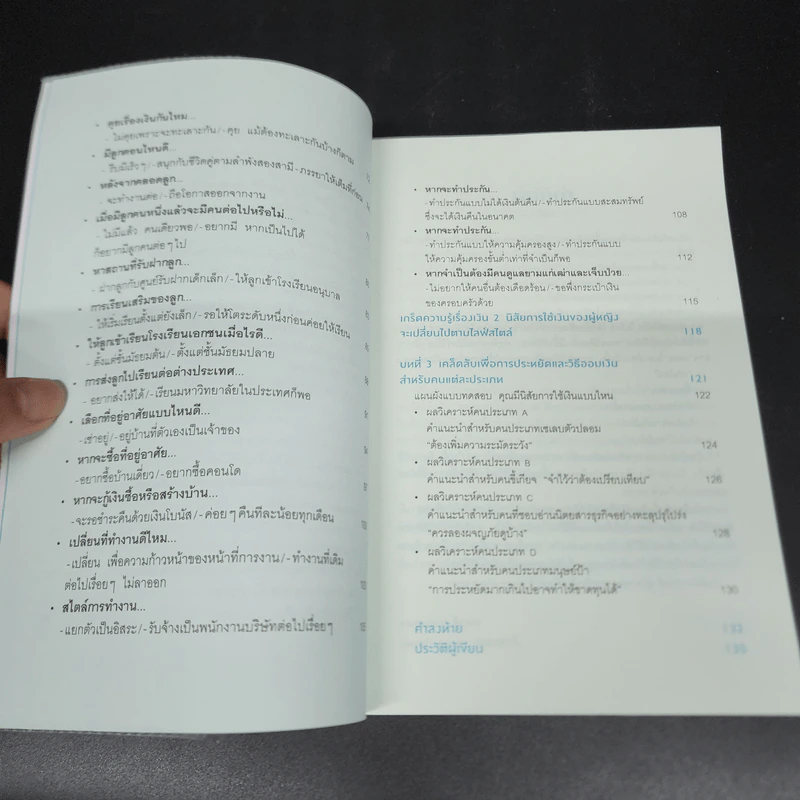 • คุยเรื่องเงินกันไหม...
- ไม่คุยเพราะจะทะเลาะกัน/- คุย แม้ต้องทะเลาะกันบ้างก็ตาม
• มีลูกตอนไหนดี...
- รีบมีเร็วๆ/- สนุกกับชีวิตคู่ตามลำพังสองสามี-ภรรยาให้เต็มที่ก่อน
• หลังจากคลอดลูก...
- จะทำงานต่อ/- ถือโอกาสออกจากงาน
• เมื่อมีลูกคนหนึ่งแล้วจะมีคนต่อไปหรือไม่...
- ไม่มีแล้ว คนเดียวพอ/- อยากมี หากเป็นไปได้
ก็อยากมีลูกคนต่อๆ ไป
• หาสถานที่รับฝากลูก...
- ฝากลูกกับศูนย์รับฝากเด็กเล็ก/- ให้ลูกเข้าโรงเรียนอนุบาล
• การเรียนเสริมของลูก...
- ให้เริ่มเรียนตั้งแต่ยังเล็ก/- รอให้โตระดับหนึ่งก่อนค่อยให้เรียน
• ให้ลูกเข้าเรียนโรงเรียนเอกชนเมื่อไรดี...
- ตั้งแต่ชั้นมัธยมต้น/- ตั้งแต่ชั้นมัธยมปลาย
• การส่งลูกไปเรียนต่อต่างประเทศ...
- อยากส่งให้ได้/- เรียนมหาวิทยาลัยในประเทศก็พอ
• เลือกที่อยู่อาศัยแบบไหนดี...
- เช่าอยู่/- อยู่บ้านที่ตัวเองเป็นเจ้าของ
• หากจะซื้อที่อยู่อาศัย...
- อยากซื้อบ้านเดี่ยว/- อยากซื้อคอนโด
• หากจะกู้เงินซื้อหรือสร้างบ้าน...
- จะรอชำระคืนด้วยเงินโบนัส/- ค่อยๆ คืนทีละน้อยทุกเดือน
• เปลี่ยนที่ทำงานดีไหม...
- เปลี่ยน เพื่อความก้าวหน้าของหน้าที่การงาน/- ทำงานที่เดิม
ต่อไปเรื่อยๆ ไม่ลาออก
• สไตล์การทำงาน...
- แยกตัวเป็นอิสระ/- รับจ้างเป็นพนักงานบริษัทต่อไปเรื่อยๆ
• หากจะทำประกัน...
- ทำประกันแบบไม่ได้เงินต้นคืน/- ทำประกันแบบสะสมทรัพย์
ซึ่งจะได้เงินคืนในอนาคต 108
• หากจะทำประกัน...
- ทำประกันแบบให้ความคุ้มครองสูง/- ทำประกันแบบ
ให้ความคุ้มครองขั้นต่ำเท่าที่จำเป็นก็พอ 112
• หากจำเป็นต้องมีคนดูแลยามแก่เฒ่าและเจ็บป่วย...
- ไม่อยากให้คนอื่นต้องเดือดร้อน/- ขอพึ่งกระเป๋าเงิน
ของครอบครัวด้วย 115
เกร็ดความรู้เรื่องเงิน 2 นิสัยการใช้เงินของผู้หญิง
จะเปลี่ยนไปตามไลฟ์สไตล์ 118
บทที่ 3 เคล็ดลับเพื่อการประหยัดและวิธีออมเงิน
สำหรับคนแต่ละประเภท 121
แผนผังแบบทดสอบ คุณมีนิสัยการใช้เงินแบบไหน 122
• ผลวิเคราะห์คนประเภท A
คำแนะนำสำหรับคนประเภทเซเลบตัวปลอม
"ต้องเพิ่มความระมัดระวัง" 124
• ผลวิเคราะห์คนประเภท B
คำแนะนำสำหรับคนขี้เกียจ "จำไว้ว่าต้องเปรียบเทียบ" 126
• ผลวิเคราะห์คนประเภท C
คำแนะนำสำหรับคนที่ชอบอ่านนิตยสารธุรกิจอย่างทะลุปรุโปร่ง
"ควรลองผจญภัยดูบ้าง" 128
• ผลวิเคราะห์คนประเภท D
คำแนะนำสำหรับคนประเภทมนุษย์ป้า
"การประหยัดมากเกินไปอาจทำให้ขาดทุนได้" 130
คำลงท้าย 133
ประวัติผู้เขียน